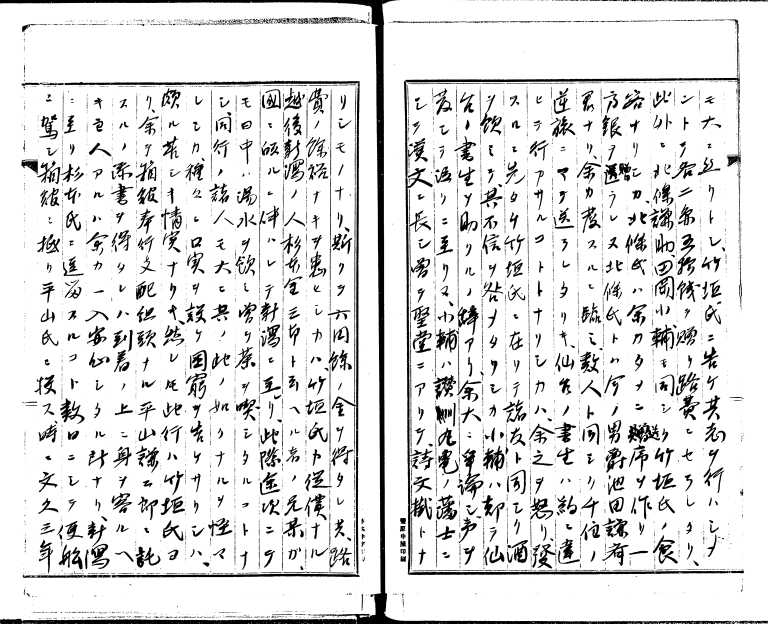 モ大ニ之リトシ竹垣氏ニ告ケ其志ヲ行ハシメ
ントヲ客ニ条五拾銭ヲ贈リ路費ニセラレタリ、
此外ニ北條謙助田岡小輔モ同シク竹垣氏ノ食
客ナリシカ北條氏ハ余カタメニ送席ヲ作リ一
方銀ヲ贈ラレヌ北條氏トハ今ノ男爵池田謙斎
君ナリ余カ発スルニ臨ミ数人ト同シク千住ノ
逆旅ニマテ送ラレタリキ、仙台ノ書生ハ約ニ違
ヒテ行アサルコトトナリシカハ、余之ヲ怒リ発
スルニ先タチ竹垣氏ニ在リテ諸友ト同シク酒
ヲ飲ミテ其不信ヲ咎メタリシカ小輔ハ却テ仙
台ノ書生ヲ助クルノ辞アリ、余大ニ争論シ声ヲ
発シテ罵ニ至リヌ、小輔ハ讃州丸亀ノ藩士ニ
シテ漢文ニ長シ嘗テ聖堂ニアリテ、詩文掛トナ
リシモノナリ、斯クテ六円余ノ金ヲ得タレ共、路
費ノ余裕ナキヲ患ヒシカハ竹垣氏カ従僕ナル
越後新潟ノ人杉本金三郎ト云ヘル者ノ兄某カ、
国ニ皈ルニ伴ハレテ新潟ニ至リ、此際途次ニテ
モ日中ハ湯水ヲ飲ミ嘗テ茶ヲ喫シタルコトナ
シ、同行ノ諸人モ大ニ其ノ此ノ如クナルヲ怪マ
レシカ種々ニ口実ヲ設ケ困窮ヲ告ケサリシハ、
頗ル苦シキ情実ナリキ、然レ𪜈此行ハ竹垣氏ヨ
リ、余ヲ箱館奉行支配組頭ナル平山謙二郎ニ託
スルノ添書ヲ得タレハ到着ノ上ニ身ヲ容ルヘ
キ主人アルハ余カ一入安心シタル所ナリ、新潟
ニ至リ杉本氏ニ逗留スルコト数日ニシテ便船
ニ駕シ箱館ニ抵リ平山氏ニ投ス時ニ文久三年